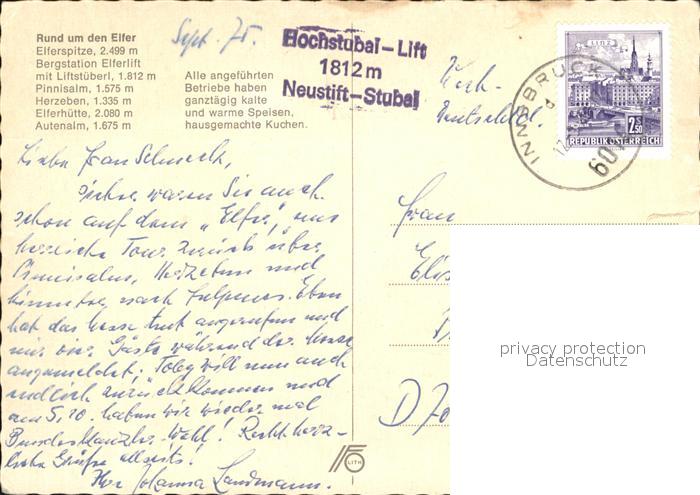 Rund um den Elfer
Elferspitze, 2.499 m
Bergstation Elferlift
mit Liftstüberl, 1.812 m
Pinnisalm, 1.575 m
Herzeben, 1.335 m
Elferhütte, 2.080 m
Autenalm, 1.675 m
Alle angeführten
Betriebe haben
ganztägig kalte
und warme Speisen,
hausgemachte Kuchen.
Sept. 75.
Hochstubai-Lift
1812 m
Neustift-Stubai
LINZ
2.50
REPUBLIK ÖSTERREICH
INNSBRUCK
60
Deutschld.
Liebe Frau
sicher waren Sie auch
schon auf dem „Elfer",
herrliche Tour zurück über
Pinnisalm, Herzeben und
nach Fulpmes. Eben
hat das angerufen und
mir vier Gäste während der
angemeldet; will nun auch
endlich zurückkommen und
am 5.10. haben wir wieder mal
Bundeskanzler-Wahl! Recht herz-
liche Grüße allseits!
Ihre Johanna Landmann.
Frau
D
FO
LITH
privacy protection
Datenschutz